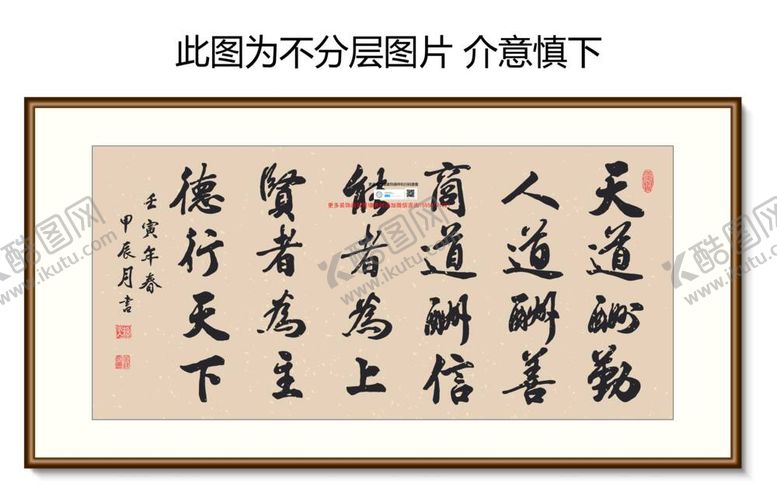 此图为不分层图片 介意慎下
天道酬勤
人道酬善
商道酬信
能者為上
賢者為主
德行天下
壬寅年春
甲辰月書
酷图网
www.ikutu.com
酷图网
www.ikutu.com
酷图网
www.ikutu.com